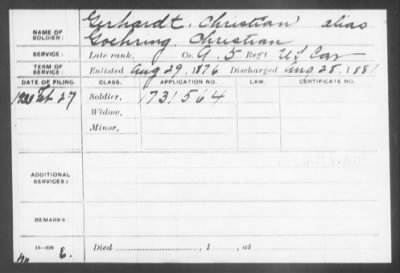 NAME OF SOLDIER: Gerhardt, Christian alias
Goehring, Christian
SERVICE: Late rank, Co. A. 5 Reg't U.S. Cav
TERM OF SERVICE: Enlisted Aug 29, 1876 Discharged Aug 28, 1881
DATE OF FILING. CLASS. APPLICATION NO. LAW. CERTIFICATE NO.
Feb 27 Soldier, 1731564
Widow,
Minor,
ADDITIONAL SERVICES:
REMARKS:
Died , 1 , at